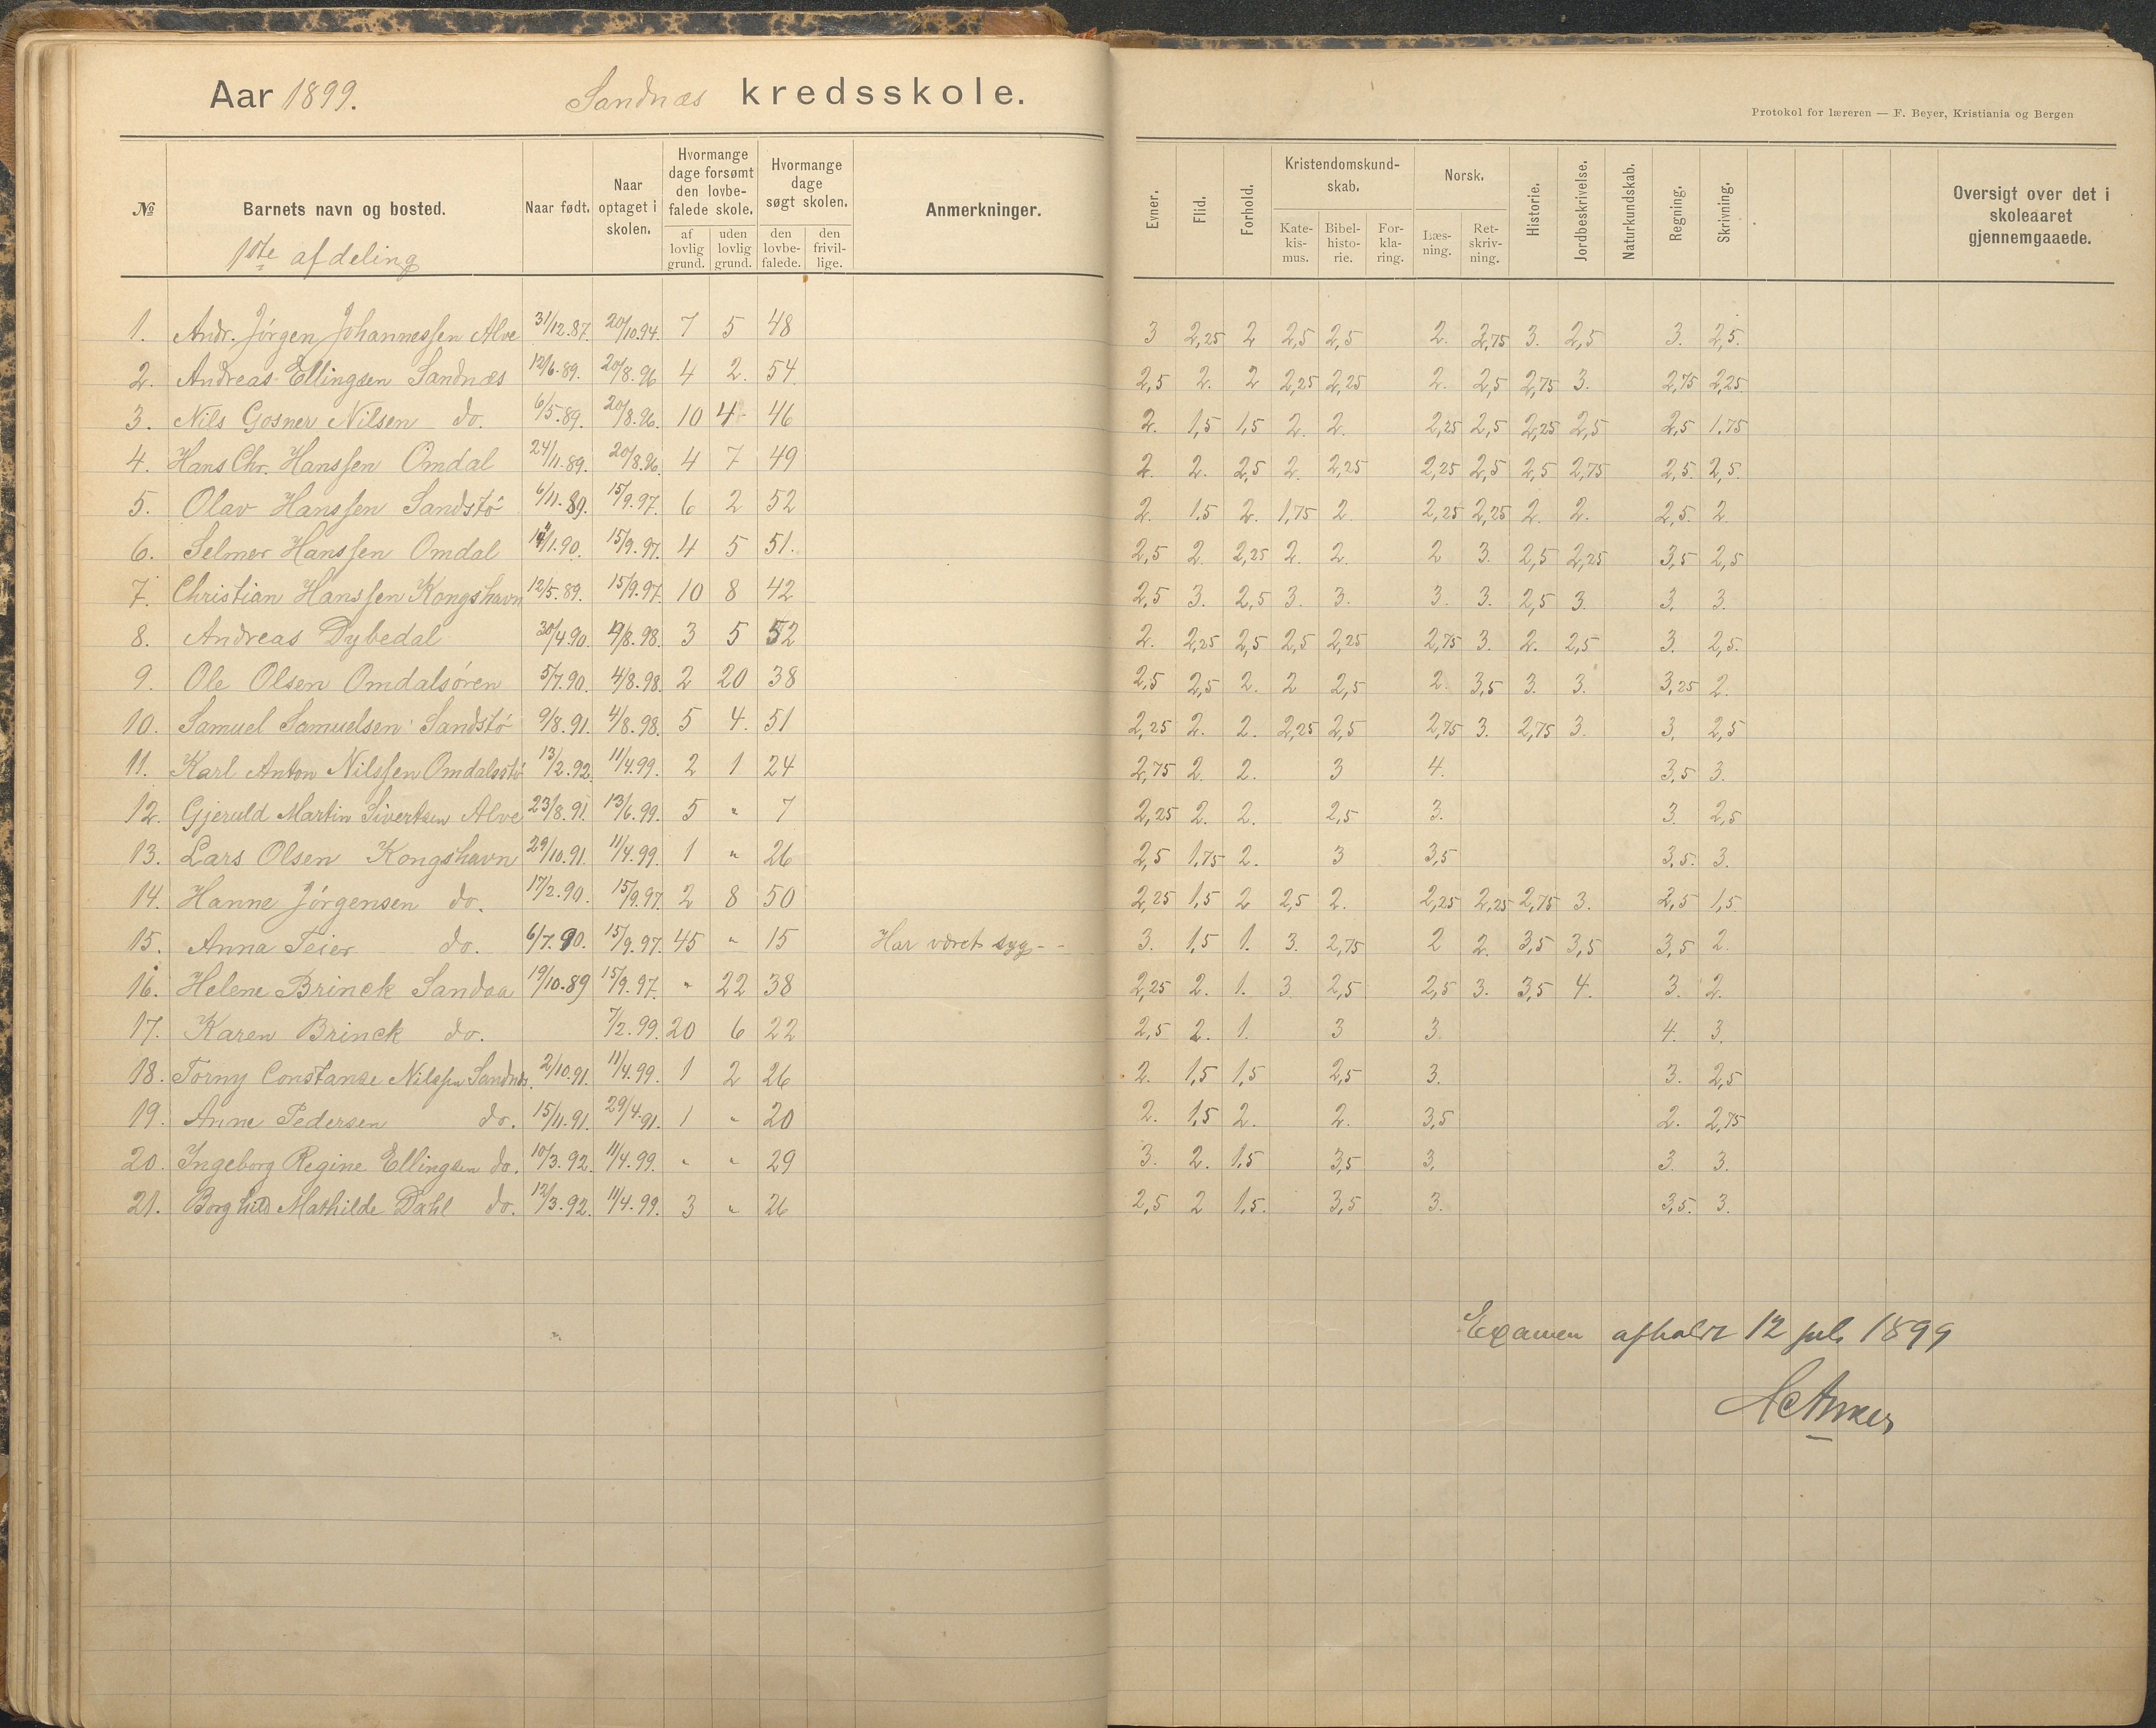 Aar 1899. Sandnæs kredsskole.
Protokol for læreren — F. Beyer, Kristiania og Bergen
№ Barnets navn og bosted. Naar født. Naar optaget i skolen. Hvormange dage forsømt den lovbefalede skole. af lovlig grund. uden lovlig grund. Hvormange dage søgt skolen. den lovbefalede. den frivillige. Anmerkninger. Evner. Flid. Forhold. Kristendomskundskab. Katekismus. Bibelhistorie. Forklaring. Norsk. Læsning. Retskrivning. Historie. Jordbeskrivelse. Naturkundskab. Regning. Skrivning. Oversigt over det i skoleaaret gjennemgaaede.
1ste afdeling
1. Andr. Jörgen Johannessen Alve 31/12.87. 20/10.94. 7 5 48 3 2,25 2 2,5 2,5 2. 2,75 3. 2,5 3. 2,5.
2. Andreas Ellingsen Sandnæs 12/6.89. 20/8.96 4 2. 54. 2,5 2. 2 2,25 2,25 2. 2,5 2,75 3. 2,75 2,25
3. Nils Gosner Nilsen do. 6/5.89. 20/8.96. 10 4 46 2. 1,5 1,5 2. 2. 2,25 2,5 2,25 2,5 2,5 1,75
4. Hans Chr. Hanssen Omdal 24/11.89. 20/8.96. 4 7 49 2. 2. 2,5 2. 2,25 2,25 2,5 2,5 2,75 2,5. 2,5.
5. Olav Hanssen Sandstö 6/11.89. 15/9.97. 6 2 52 2. 1,5 2. 1,75 2. 2,25 2,25 2. 2. 2,5. 2.
6. Selmer Hanssen Omdal /1.90. 15/9.97. 4 5 51. 2,5 2. 2,25 2. 2. 2 3. 2,5 2,25 3,5 2,5
7. Christian Hanssen Kongshavn 12/5.89. 15/9.97. 10 8 42 2,5 3. 2,5 3. 3. 3. 3. 2,5 3. 3. 3.
8. Andreas Dybedal 30/4.90. 4/8.98. 3 5 52 2. 2,25 2,5 2,5 2,25 2,75 3. 2. 2,5 3. 2,5.
9. Ole Olsen Omdalsören 5/7.90. 4/8.98. 2 20 38 2,5 2,5 2. 2 2,5 2. 3,5 3. 3. 3,25 2.
10. Samuel Samuelsen Sandstö 9/8.91. 4/8.98. 5 4. 51 2,25 2. 2. 2,25 2,5 2,75 3. 2,75 3. 3. 2,5
11. Karl Anton Nilssen Omdalsstö 13/2.92. 11/4.99. 2 1 24 2,75 2. 2. 3 4. 3,5 3.
12. Gjeruld Martin Sivertsen Alve 23/8.91. 13/6.99. 5 " 7 2,25 2. 2. 2,5 3. 3. 2,5
13. Lars Olsen Kongshavn 29/10.91. 11/4.99. 1 " 26 2,5 1,75 2. 3 3,5 3,5. 3.
14. Hanne Jörgensen do. 17/2.90. 15/9.97. 2 8 50 2,25 1,5 2 2,5 2. 2,25 2,25 2,75 3. 2,5 1,5.
15. Anna Feier do. 6/7.90. 15/9.97. 45 " 15 Har været syg - - 3. 1,5 1. 3. 2,75 2 2. 3,5 3,5 3,5 2.
16. Helene Brinck Sandaa 19/10.89 15/9.97. " 22 38 2,25 2. 1. 3 2,5 2,5 3. 3,5 4. 3. 2.
17. Karen Brinck do. 7/2.99. 20 6 22 2,5 2. 1. 3 3 4. 3.
18. Torny Constanse Nilssen Sandnæs. 2/10.91. 11/4.99. 1 2 26 2. 1,5 1,5 2,5 3. 3. 2,5
19. Anne Pedersen do. 15/11.91. 29/4.91. 1 " 20 2. 1,5 2. 2. 3,5 2. 2,75
20. Ingeborg Regine Ellingsen do. 10/3.92. 11/4.99. " " 29 3. 2. 1,5 3,5 3. 3. 3.
21. Borghild Mathilde Dahl do. 12/3.92. 11/4.99. 3 " 26 2,5 2 1,5. 3,5 3. 3,5. 3.
Examen afholdt 12 juli 1899